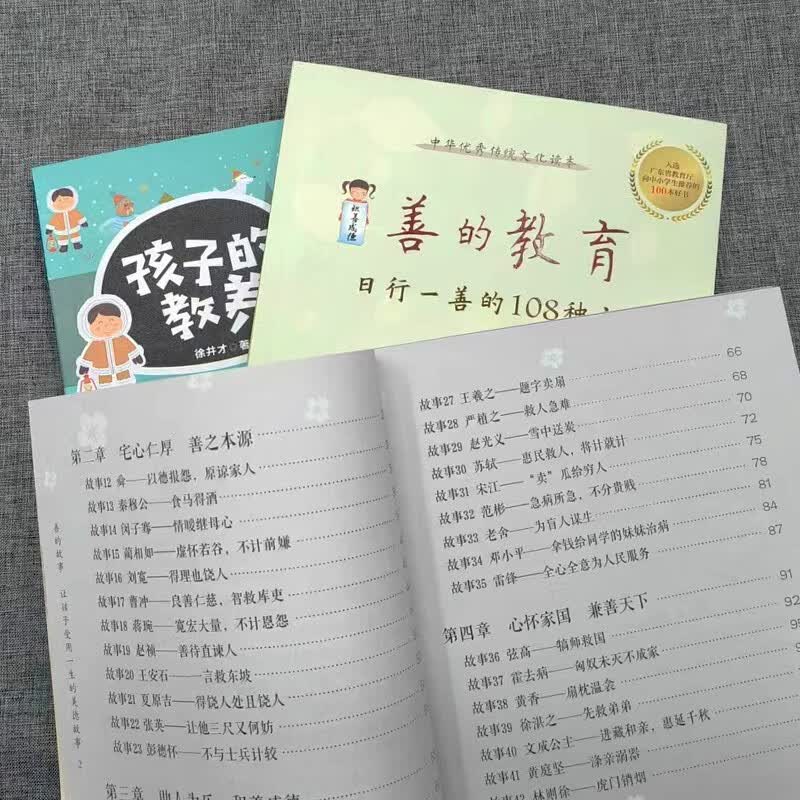 中华优秀传统文化读本
入选
广东省教育厅
向中小学生推荐的
100本好书
积善成德
善的教育
日行一善的108种
孩子的
教养
徐井才 著
第二章 宅心仁厚 善之本源
故事12 舜——以德报怨，原谅家人
故事13 秦穆公——食马得酒
故事14 闵子骞——情暖继母心
故事15 蔺相如——虚怀若谷，不计前嫌
故事16 刘宽——得理也饶人
故事17 曹冲——良善仁慈，智救库吏
故事18 蒋琬——宽宏大量，不计恩怨
故事19 赵祯——善待直谏人
故事20 王安石——一言救东坡
故事21 夏原吉——得饶人处且饶人
故事22 张英——让他三尺又何妨
故事23 彭德怀——不与士兵计较
第三章 助人为乐 积善成德
善的故事 让孩子受用一生的美德故事 2
66
故事27 王羲之——题字卖扇 68
故事28 严植之——救人急难 70
故事29 赵光义——雪中送炭 72
故事30 苏轼——惠民救人，将计就计 75
故事31 宋江——“卖”瓜给穷人 78
故事32 范彬——急病所急，不分贵贱 81
故事33 老舍——为盲人谋生 84
故事34 邓小平——拿钱给同学的妹妹治病 87
故事35 雷锋——全心全意为人民服务
第四章 心怀家国 兼善天下 91
故事36 弦高——犒师救国 92
故事37 霍去病——匈奴未灭不成家
故事38 黄香——扇枕温衾
故事39 徐湛之——先救弟弟
故事40 文成公主——进藏和亲，惠延千秋
故事41 黄庭坚——涤亲溺器
故事42 林则徐——虎门销烟